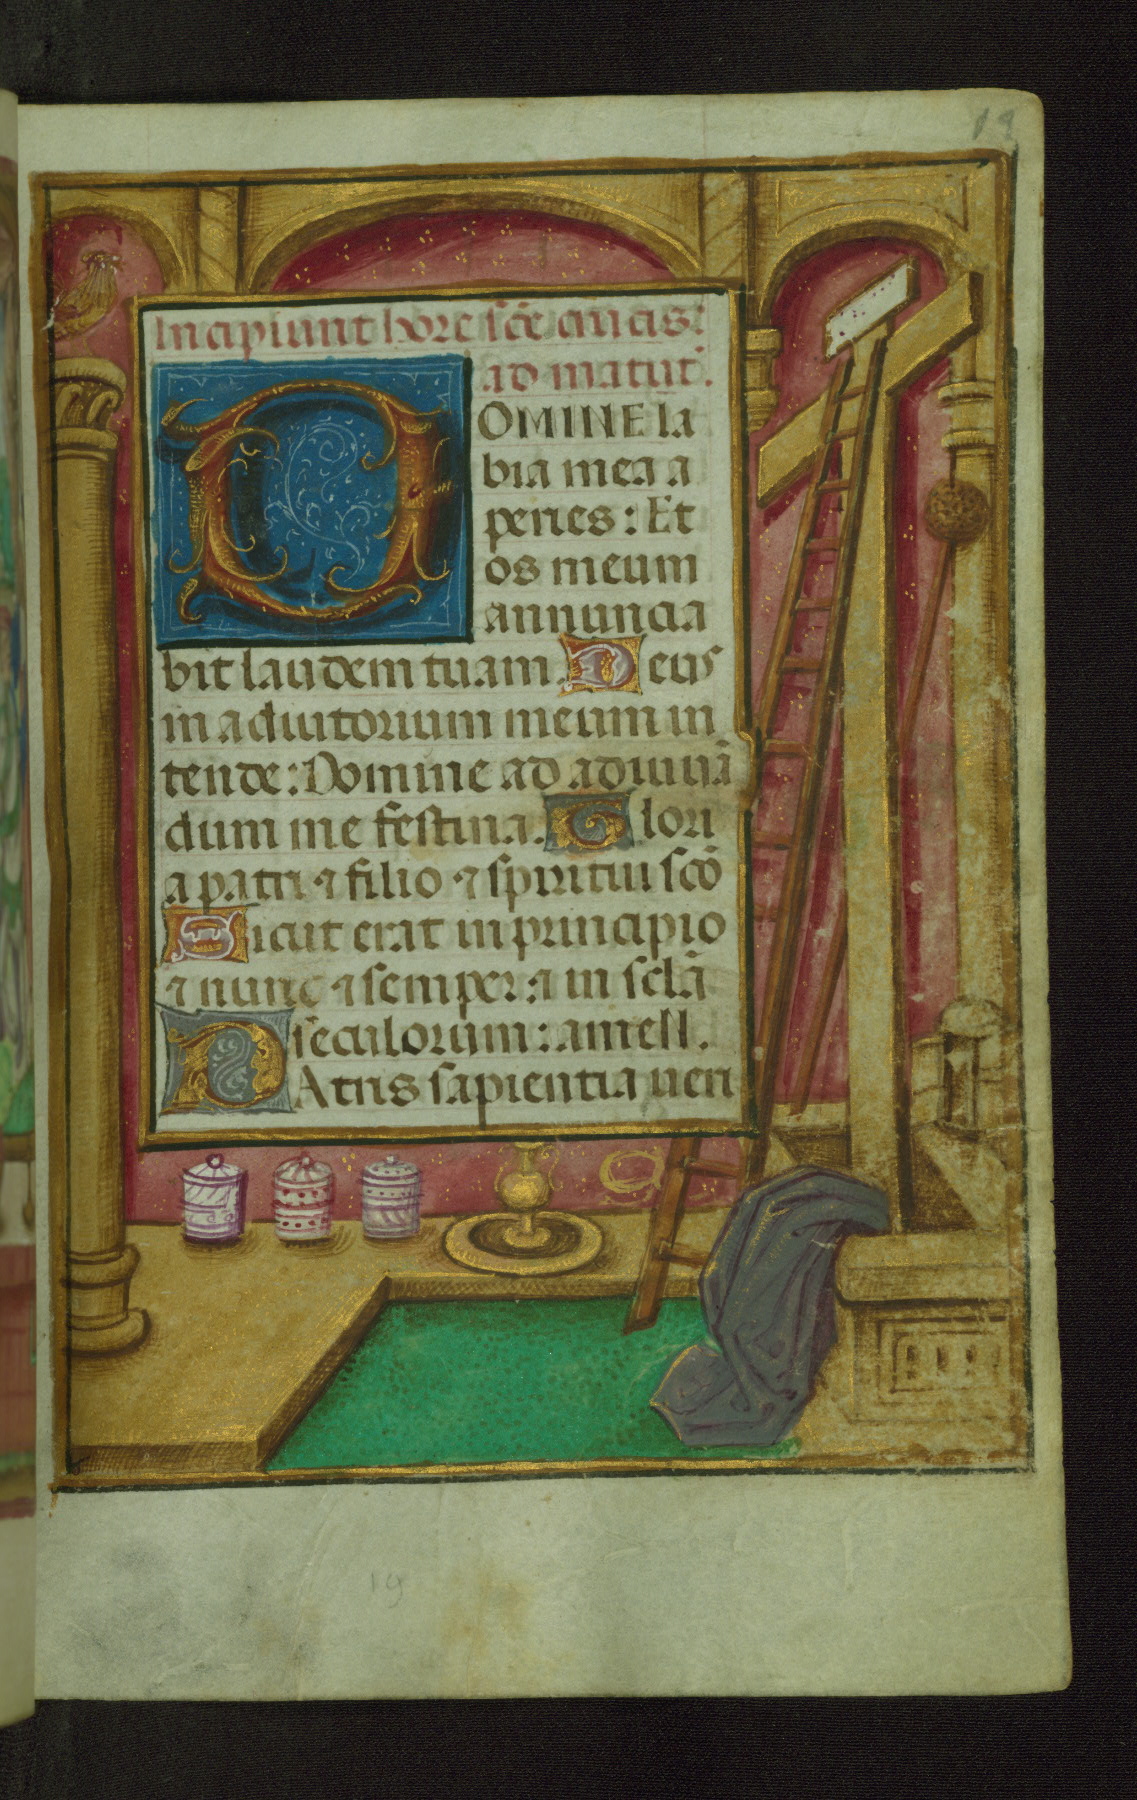 19
Incipiunt hore scē crucis:
ad matut̄.
DOMINE la
bia mea a
peries: Et
os meum
annuncia
bit laudem tuam. Deus
in adiutorium meum in
tende: Domine ad adiuuā
dum me festina. Glori
a patri ⁊ filio ⁊ spiritui scō
Sicut erat in principio
⁊ nunc ⁊ semper: ⁊ in sclā
seculorum: amen.
PAtris sapientia ueri
19